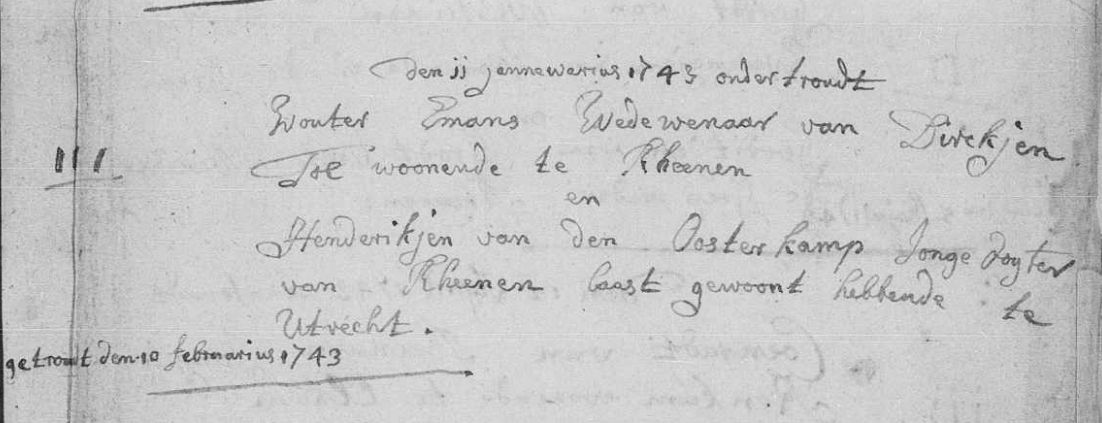 den 11 jannewarius 1743 ondertroudt
Wouter Emans Wedewenaar van Dirckjen
III
woonende te Rheenen
en
Henderikjen van den Oosterkamp Jonge dogter
van Rheenen laast gewoont hebbende te
Utrecht.
getrouwt den 10 februarius 1743